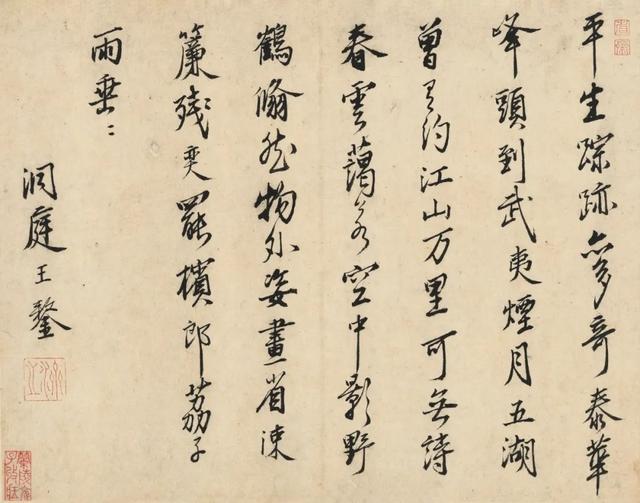 平生踪跡亦多奇泰華
峰頭到武夷煙月五湖
曾有約江山万里可無詩
春雲藹藹空中影野
鶴翛然物外姿畫省凍
簾殘奕罷檳郎荔子
雨垂〻
洞庭王鏊